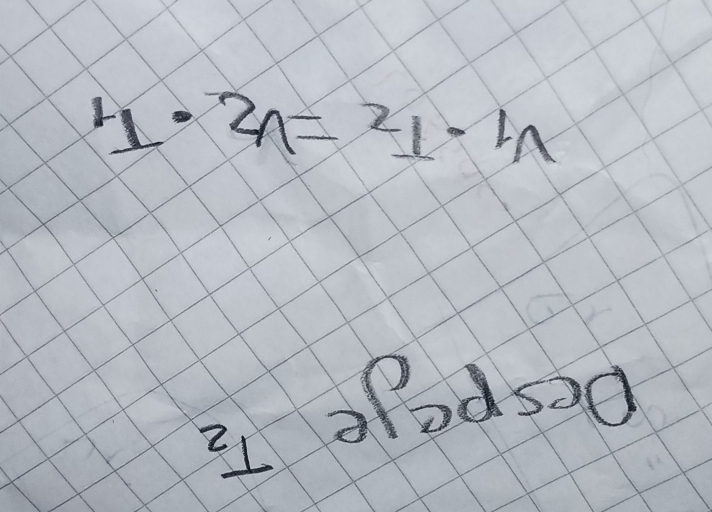 Despeje T₂
V₁ · T₂ = V₂ · T₁